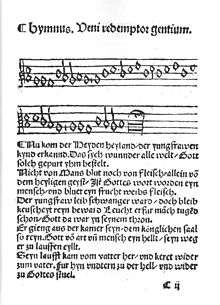 ¶ Hymnus. Veni redemptor gentium.
¶ Nu kom der Heyden heyland/ der yungfrawen
kynd erkannd. Das sych wunnder alle welt/ Gott
solch gepurt yhm bestelt.
Nicht von Mans blut noch von fleisch/ allein vō
dem heyligen geyst/ Ist Gottes wort worden eyn
mensch/ vnd bluet eyn frucht weibs fleisch.
Der yungfraw leib schwanger ward/ doch bleib
keuscheyt reyn beward Leucht erfur māch tugēd
schon/ Gott da war yn seynem thron.
Er gieng aus der kamer seyn/ dem könglichen saal
so reyn. Gott vō art vñ mensch eyn hellt/ seyn weg
er zu lauffen eyllt.
Seyn laufft kam vom vater her/ vnd keret wider
zum vater. fur hyn vndtern zu der hell/ vnd wider
zu Gottes stuel.
C ij